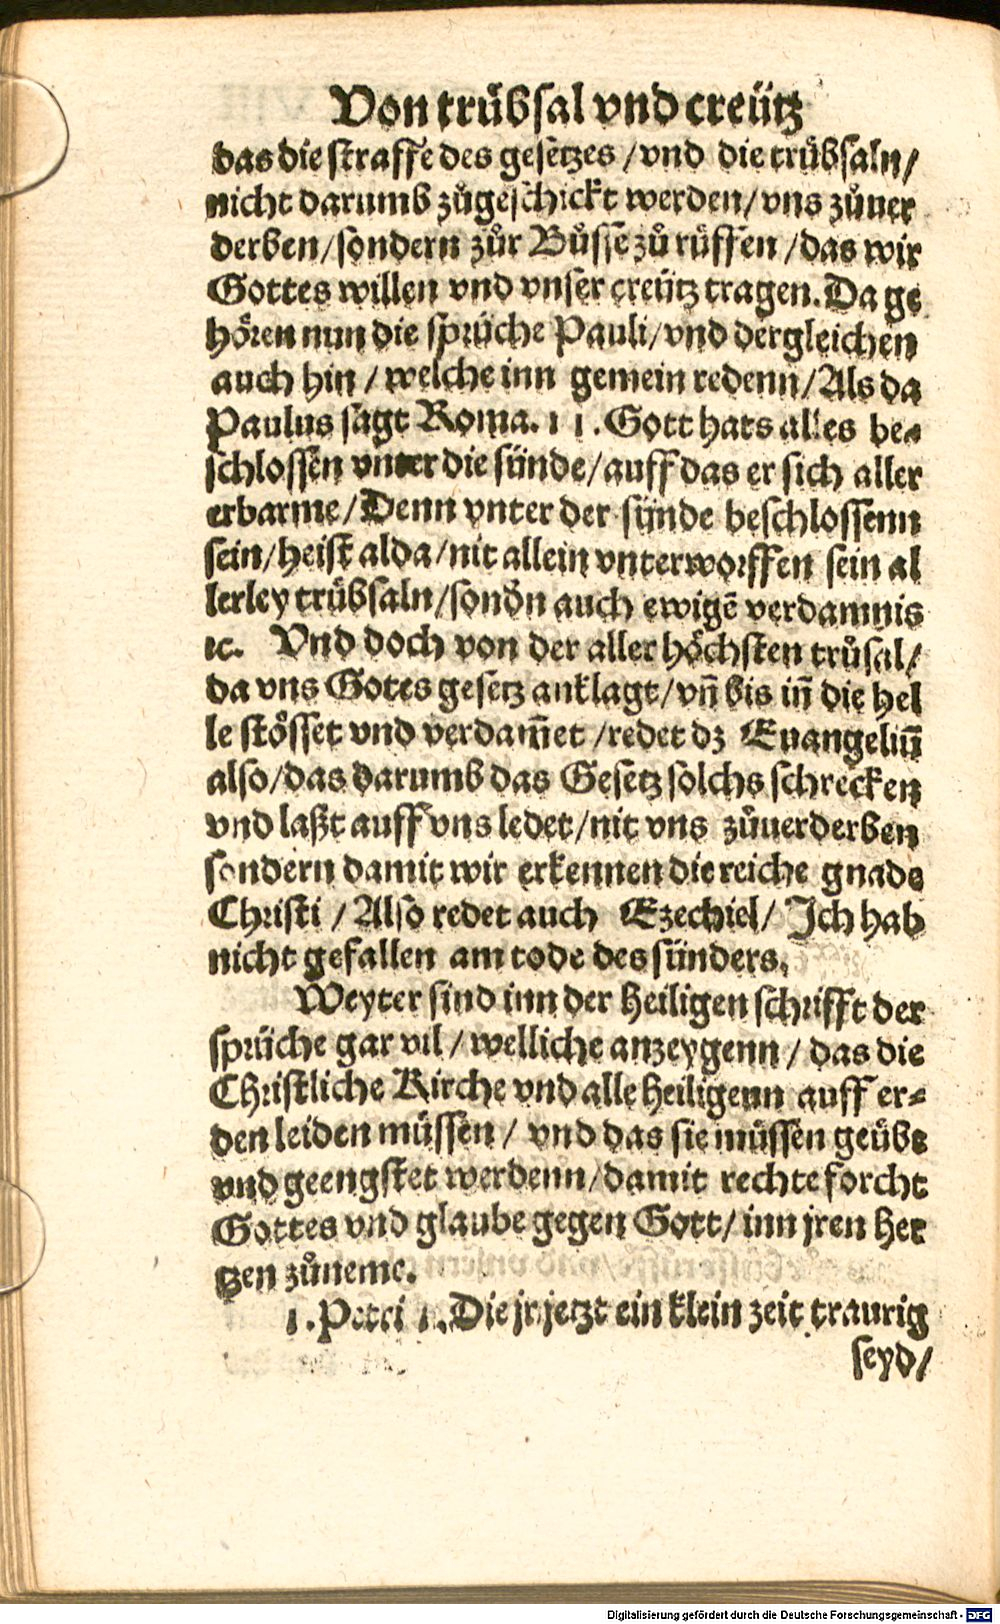 Von trübsal vnd creütz
das die straffe des gesetzes /vnd die trübsaln/
nicht darumb zůgeschickt werden/vns zůuer
derben/sondern zůr Bůsse zů rüffen /das wir
Gottes willen vnd vnser creütz tragen. Da ge
hören nun die sprüche Pauli/vnd dergleichen
auch hin / welche inn gemein redenn/Als da
Paulus sagt Roma. 11. Gott hats alles be⸗
schlossen vnter die sünde/auff das er sich aller
erbarme/Denn vnter der sünde beschlossenn
sein/heist alda/nit allein vnterworffen sein al
lerley trübsaln/sonďn auch ewigē verdamnis
ꝛc. Vnd doch von der aller höchsten trůsal/
da vns Gotes gesetz anklagt/vn̄ bis in̄ die hel
le stösset vnd verdam̄et /redet dz Euangeliū
also/das darumb das Gesetz solchs schrecken
vnd laßt auff vns ledet/nit vns zůuerderben
sondern damit wir erkennen die reiche gnade
Christi / Also redet auch Ezechiel/ Ich hab
nicht gefallen am tode des sünders.
Weyter sind inn der Heiligen schrifft der
sprüche gar vil / welliche anzeygenn / das die
Christliche Kirche vnd alle Heiligenn auff er⸗
den leiden müssen / vnd das sie müssen geübt
vnd geengstet werdenn/damit rechte forcht
Gottes vnd glaube gegen Gott/ inn jren Her
tzen zůneme.
1. Petri 1. Die jr jetzt ein klein zeit traurig
seyd/
Digitalisierung gefördert durch die Deutsche Forschungsgemeinschaft - DFG